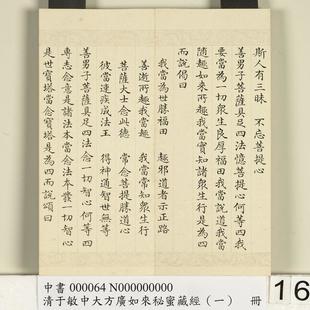 斯人有三昧　不忘菩提心
善男子菩薩具足四法憶菩提心何等四我
要當為一切眾生良厚福田我當說道我當
隨趣如來所趣我當實知諸眾生行是為四
而說偈曰
我當為世勝福田　趣邪道者示正路
善逝所趣我當趣　我當常知眾生行
菩薩大士念此德　常念菩提勝道心
彼當逮疾成法王　得神通智世無等
善男子菩薩具足四法念一切智心何等四
專志念意是諸法本當念法本發一切智心
是世寶塔當念寶塔是為四而說頌曰
中書 000064 N000000000
清于敏中大方廣如來秘蜜藏經（一）　冊
16